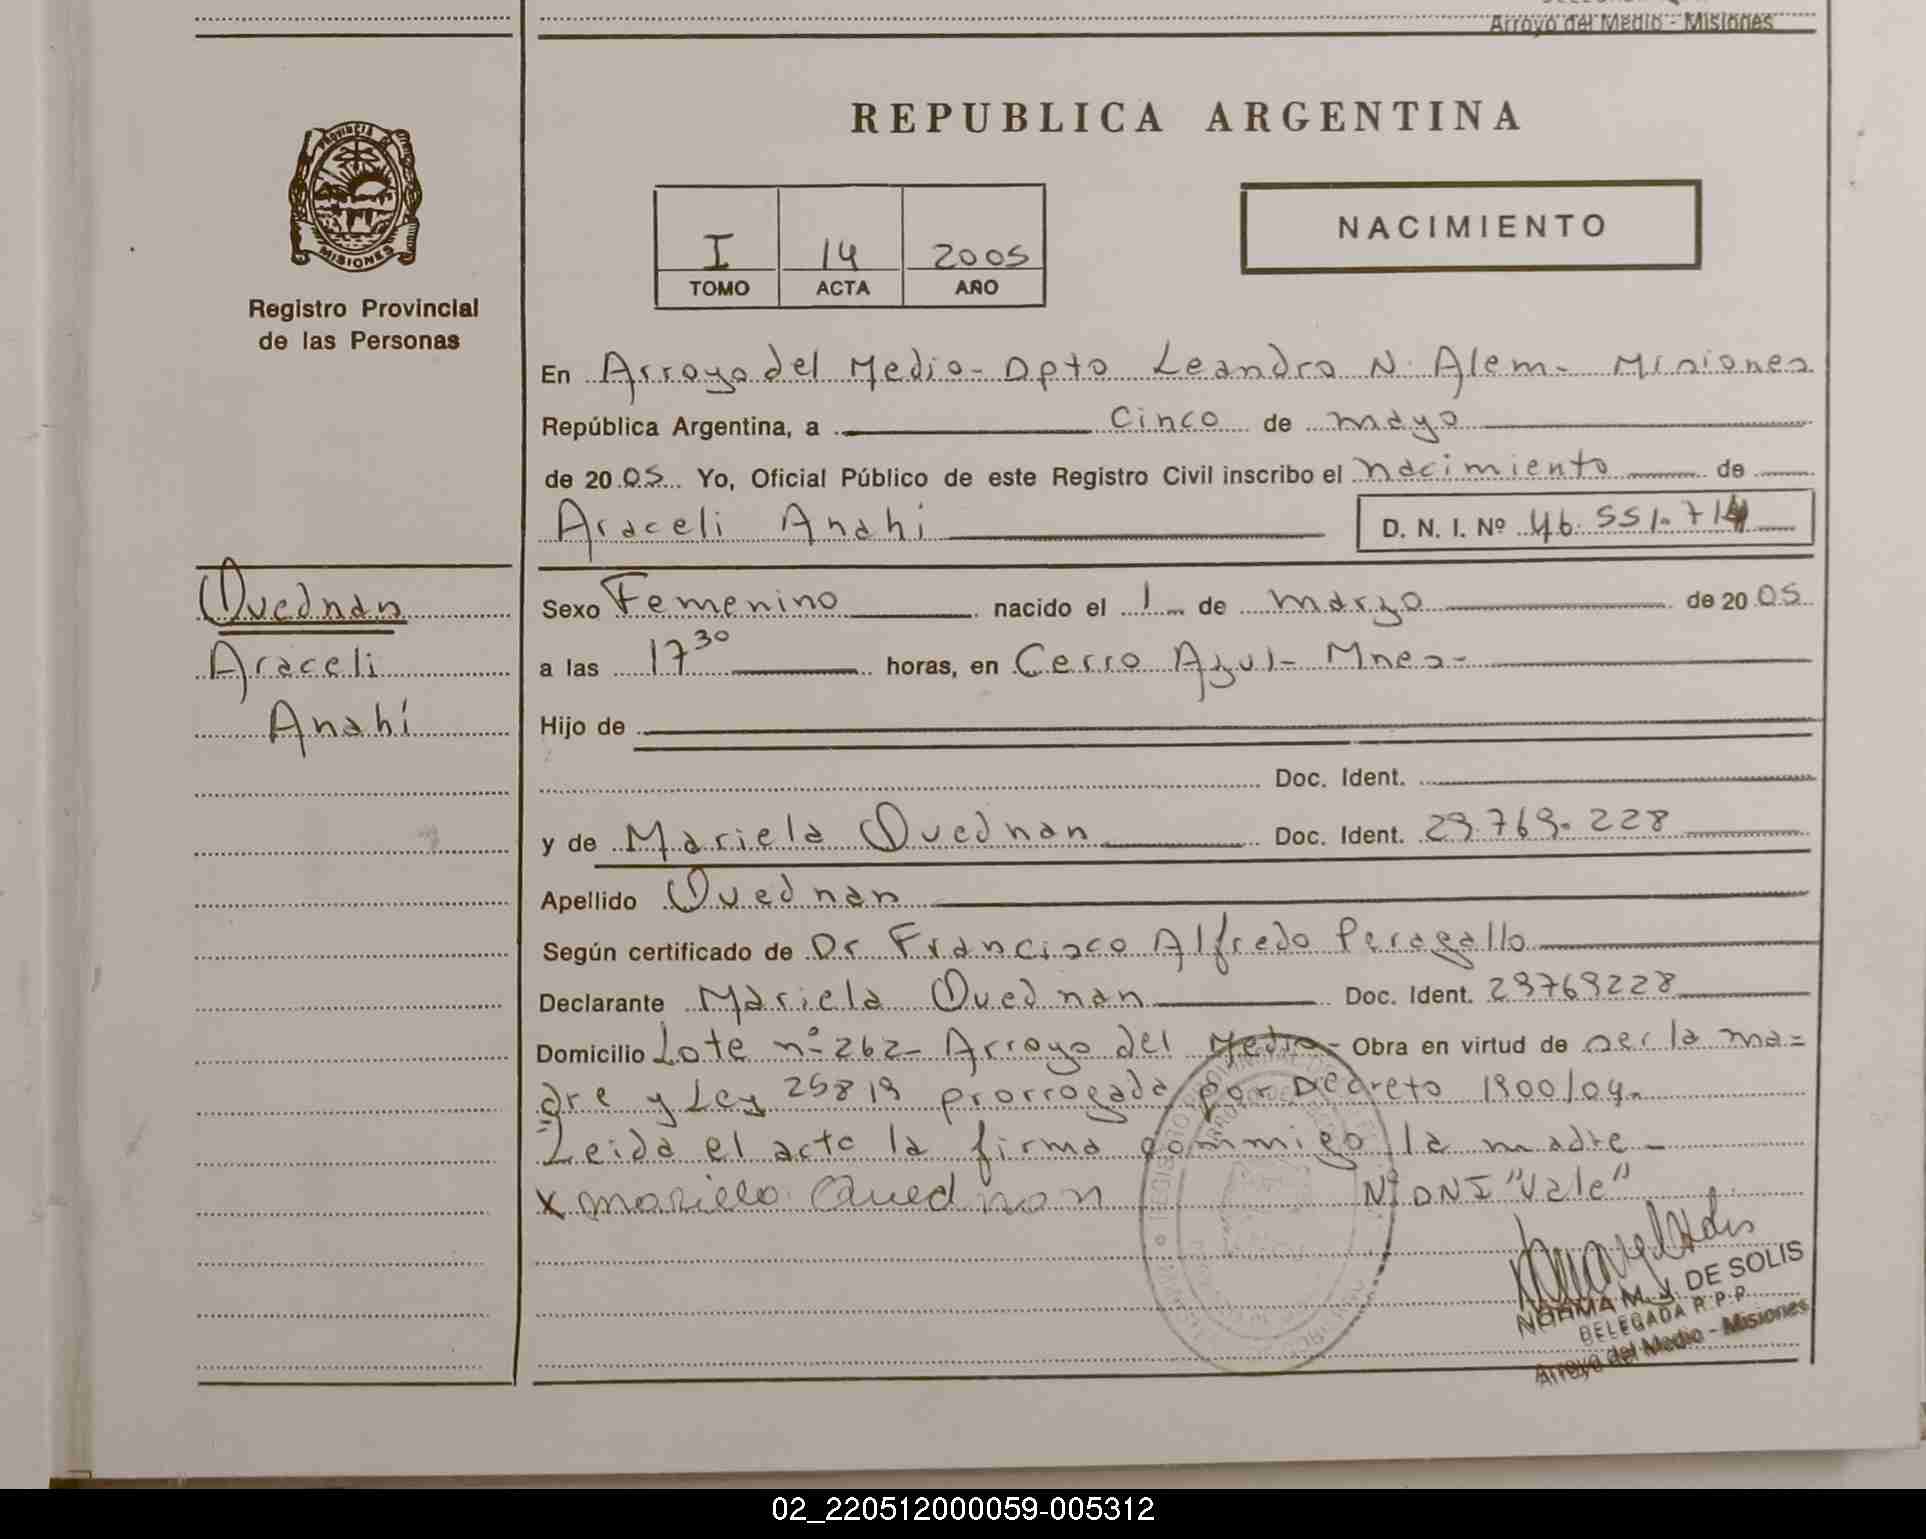 Arroyo del Medio - Misiones
REPUBLICA ARGENTINA
PROVINCIA DE
MISIONES
Registro Provincial
de las Personas
I 14 2005
TOMO ACTA AÑO
NACIMIENTO
En Arroyo del Medio - Dpto Leandro N. Alem - Misiones
República Argentina, a Cinco de mayo
de 2005 Yo, Oficial Público de este Registro Civil inscribo el nacimiento de
Araceli Anahi D. N. I. Nº 46.551.714
Quednan
Araceli
Anahí
Sexo Femenino nacido el 1 de marzo de 2005
a las 17 30 horas, en Cerro Azul - Mnes -
Hijo de
Doc. Ident.
y de Mariela Quednan Doc. Ident. 29.769.228
Apellido Quednan
Según certificado de Dr Francisco Alfredo Peragallo
Declarante Mariela Quednan Doc. Ident. 29769228
Domicilio Lote nº 262 - Arroyo del Medio - Obra en virtud de ser la ma=
dre y Ley 25819 prorrogada por Decreto 1900/04.
Leida el acta la firma conmigo la madre -
x Mariela Quednan Nº DNI "Vale"
NORMA M. J. DE SOLIS
DELEGADA R.P.P.
Arroyo del Medio - Misiones
02_220512000059-005312